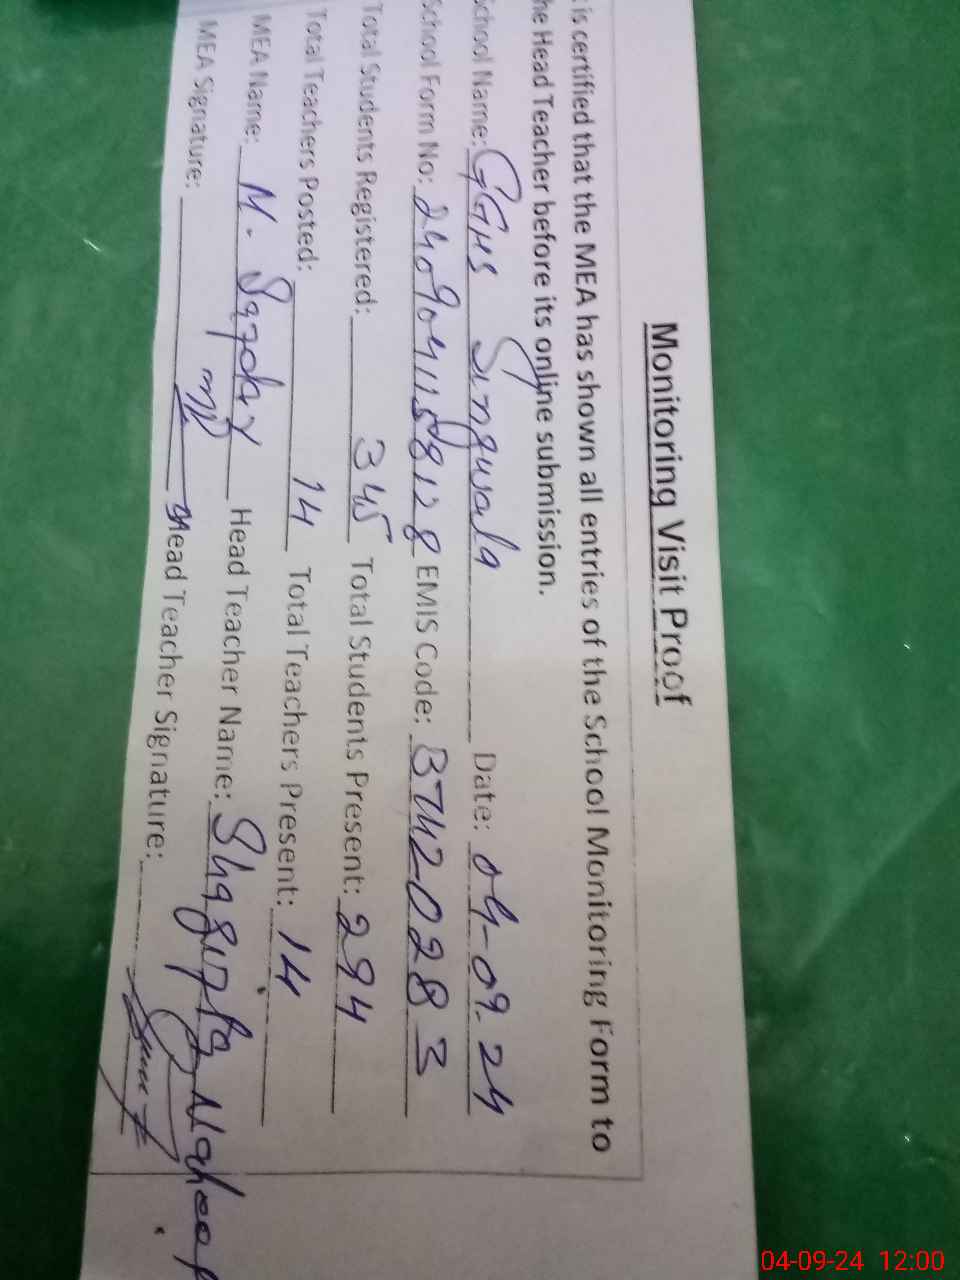 Monitoring Visit Proof
is certified that the MEA has shown all entries of the School Monitoring Form to
he Head Teacher before its online submission.
School Name: GGHS Singwala Date: 04-09-24
School Form No: EMIS Code: 37420283
Total Students Registered: 345 Total Students Present: 294
Total Teachers Posted: 14 Total Teachers Present: 14
MEA Name: M. Head Teacher Name:
MEA Signature: Head Teacher Signature:
04-09-24 12:00